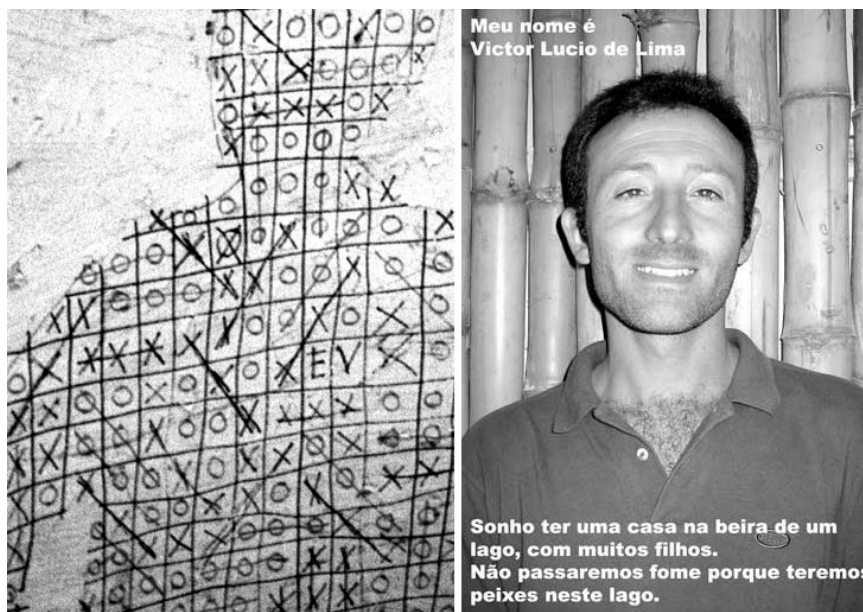 E V
Meu nome é
Victor Lucio de Lima
Sonho ter uma casa na beira de um
lago, com muitos filhos.
Não passaremos fome porque teremos
peixes neste lago.